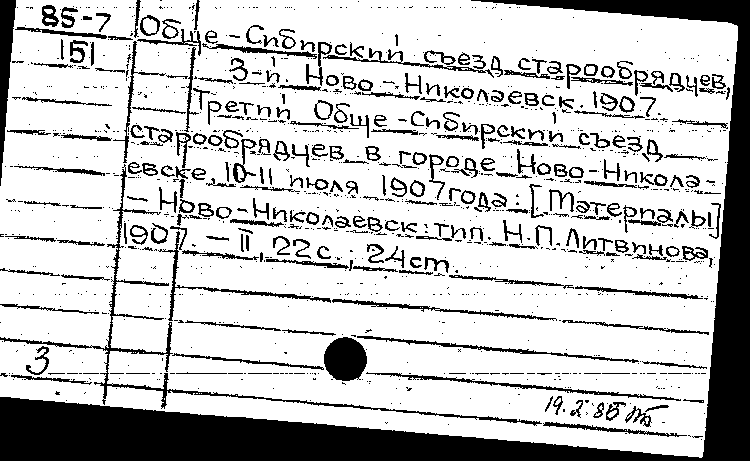 85-7
151
Обще-Сибирский съезд старообрядцев,
3-й. Ново-Николаевск. 1907.
Третий Обще-Сибирский съезд
старообрядцев в городе Ново-Никола-
евске, 10-11 июля 1907 года: [Материалы]
— Ново-Николаевск: тип. Н.П.Литвинова,
1907. — II, 22 с.; 24 см.
3
19.X.85